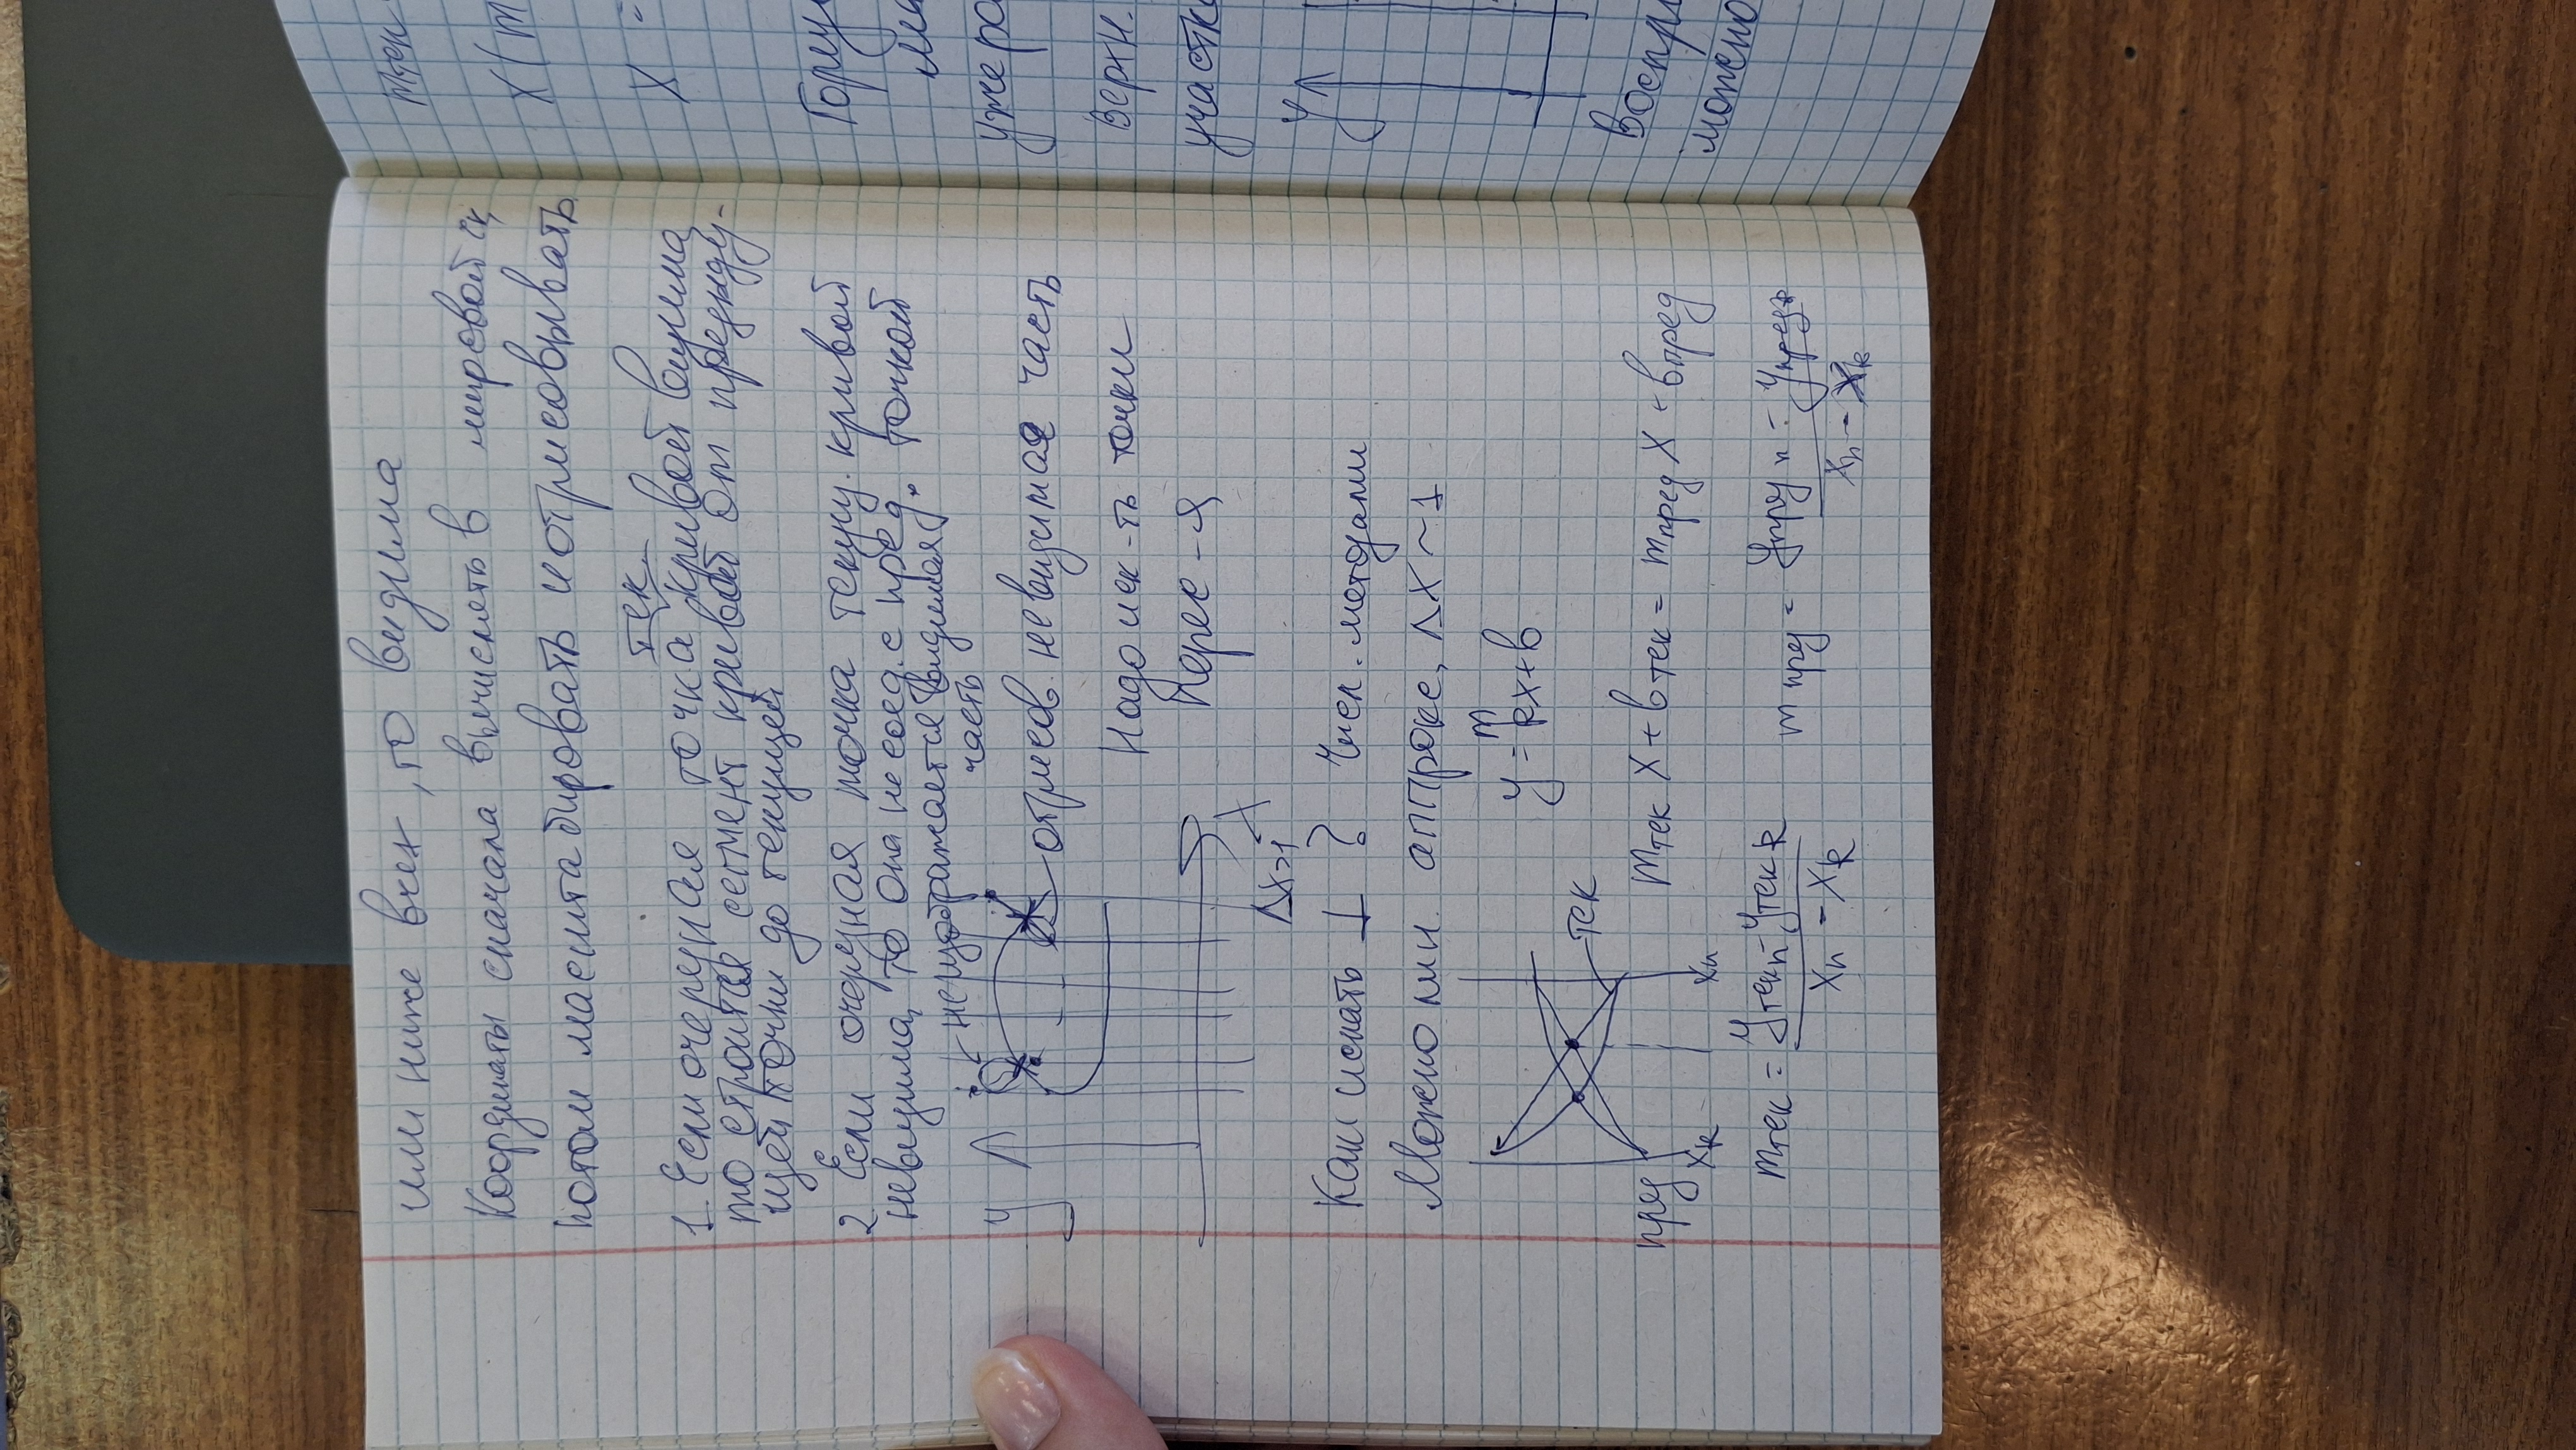 или ниже всех, то видима
Координаты сначала вычислять в мировой ск,
потом масштабировать и отрисовывать
тек.
1. Если очередная точка кривой видима,
то строится сегмент кривой от предыду-
щей точки до текущей
2. Если очередная точка текущ. кривой
невидима, то она не соед. с пред. точкой
не изображается видимая
часть
y
отрисов. невидимая часть
Надо иск-ть точки
перес-я
x
Δx>1
Как искать ⊥ ? Числ. методами
Можно лин. аппрокс, Δx ~ 1
m
y = kx+b
тек
пред
mтек x + bтек = mпред x + bпред
xk xn
mтек = yтек n - yтек k / xn - xk
mпред = yпред n - yпред k / xn - xk
mтек
x(m
x =
Верхн.
участк
y
можно